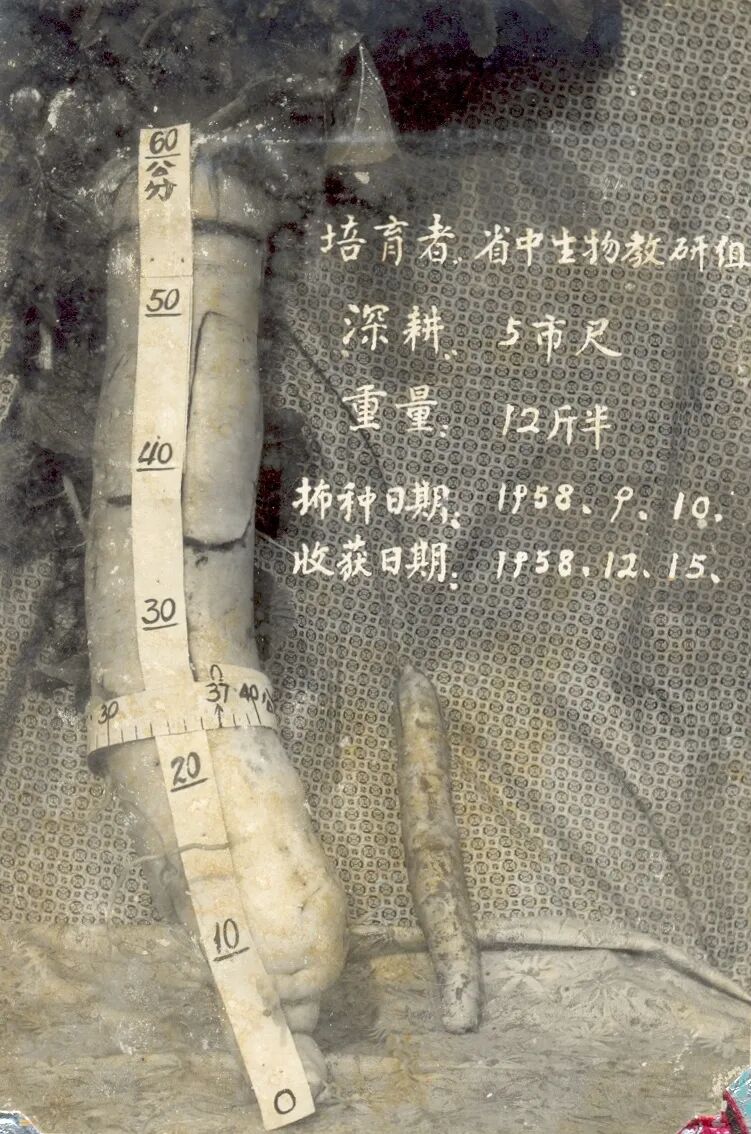 60
公分
50
40
30
30 37 40公
20
10
0
培育者：省中生物教研组
深耕：5市尺
重量：12斤半
播种日期：1958、9、10、
收获日期：1958、12、15、